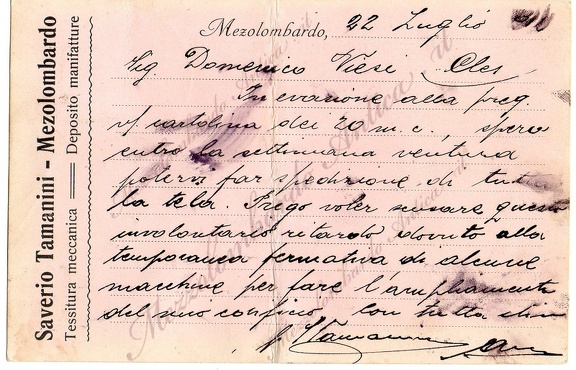 Saverio Tamanini - Mezolombardo
Tessitura meccanica == Deposito manifatture
Mezolombardo, 22 Luglio
Sig. Domenico Viesi Cles
In evasione alla preg.
V/ cartolina dei 20 m. c., spero
entro la settimana ventura
potervi far spedizione di tutta
la tela. Prego voler scusare questo
involontario ritardo dovuto alla
temporanea fermativa di alcune
macchine per fare l'ampliamento
del mio opificio. Con tutta stima
Tamanini